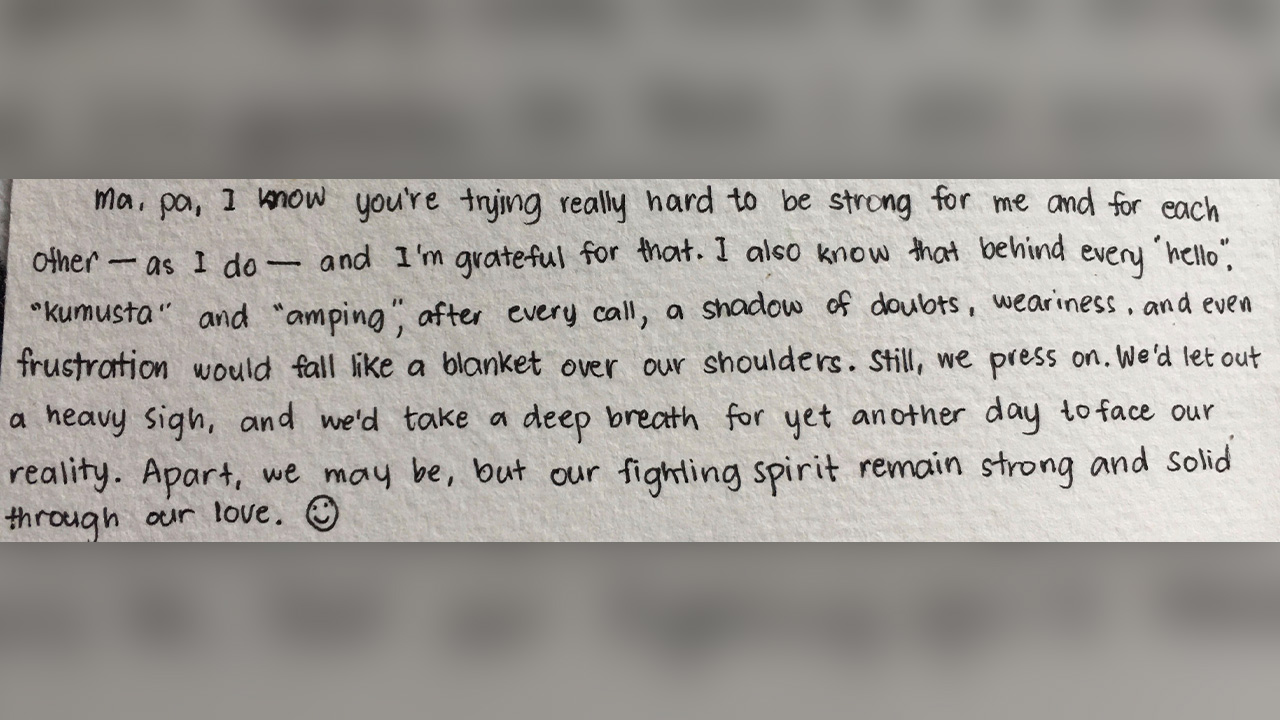 Ma, pa, I know you're trying really hard to be strong for me and for each
other — as I do — and I'm grateful for that. I also know that behind every "hello",
"kumusta" and "amping", after every call, a shadow of doubts, weariness, and even
frustration would fall like a blanket over our shoulders. Still, we press on. We'd let out
a heavy sigh, and we'd take a deep breath for yet another day to face our
reality. Apart, we may be, but our fighting spirit remain strong and solid
through our love. ☺